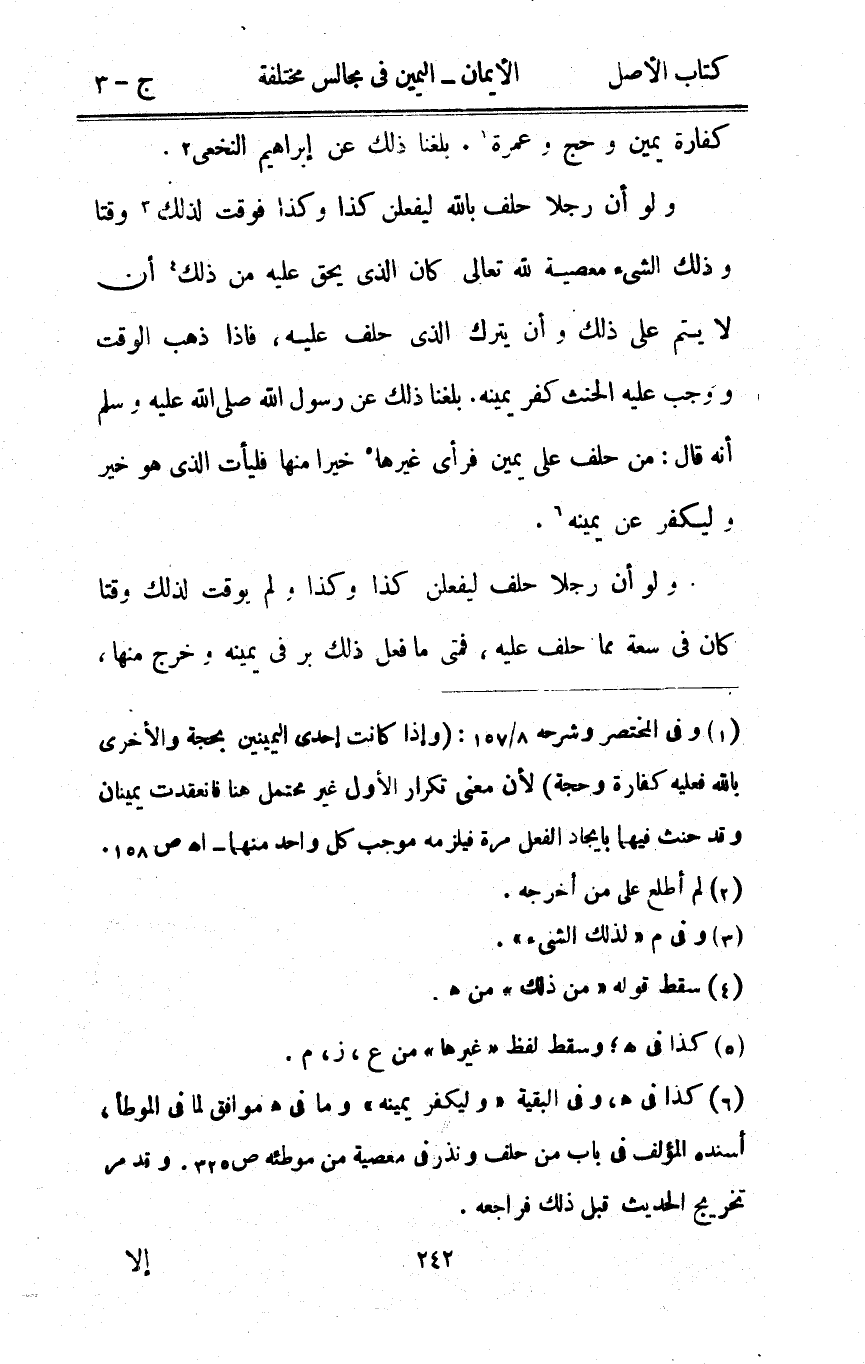 كتاب الأصل الأيمان ـ اليمين فى مجالس مختلفة ج – ٣
كفارة يمين و حج و عمرة١ . بلغنا ذلك عن إبراهيم النخعى٢ .
و لو أن رجلا حلف بالله ليفعلن كذا وكذا فوقت لذلك٣ وقتا
و ذلك الشىء معصية لله تعالى كان الذى يحق عليه من ذلك٤ أن
لا يتم على ذلك و أن يترك الذى حلف عليه ، فاذا ذهب الوقت
و وجب عليه الحنث كفر يمينه . بلغنا ذلك عن رسول الله صلى الله عليه و سلم
أنه قال : من حلف على يمين فرأى غيرها٥ خيرا منها فليأت الذى هو خير
و ليكفر عن يمينه٦ .
و لو أن رجلا حلف ليفعلن كذا وكذا و لم يوقت لذلك وقتا
كان فى سعة مما حلف عليه ، فمتى ما فعل ذلك بر فى يمينه و خرج منها ،
(١) و فى المختصر وشرحه ١٥٧/٨ : (وإذا كانت إحدى اليمينين بحجة والأخرى
بالله فعليه كفارة وحجة) لأن معنى تكرار الأول غير محتمل هنا فانعقدت يمينان
و قد حنث فيهما بايجاد الفعل مرة فيلزمه موجب كل واحد منهما ـ اه ص ١٥٨ .
(٢) لم أطلع على من أخرجه .
(٣) و فى م « لذلك الشىء » .
(٤) سقط قوله « من ذلك » من ه .
(٥) كذا فى ه ؛ وسقط لفظ « غيرها » من ع ، ز ، م .
(٦) كذا فى ه ، و فى البقية « و ليكفر يمينه » و ما فى ه موافق لما فى الموطأ ،
أسنده المؤلف فى باب من حلف و نذر فى معصية من موطئه ص ٣٢٥ . و قد مر
تخريج الحديث قبل ذلك فراجعه .
٢٤٢ إلا